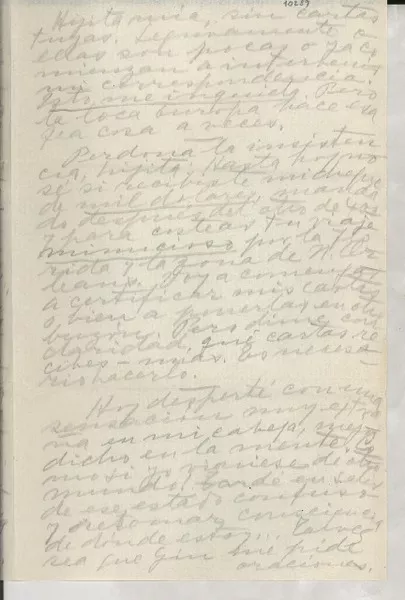 10289
Hijita mía, sin cartas
tuyas. Seguramente o
ellas son pocas o ya co
mienzan a intervenir
mi correspondencia.
Esto me inquieta. Pero
la loca Europa hace esa
fea cosa a veces.
Perdona la insisten
cia, hijita. Hasta hoy no
sé si recibiste mi cheque
de mil dolares, manda
do después del otro de
y para costear tu viaje
minucioso por la Flo
rida y la zona de N. Or
leans. Voy a comenzar
a certificar mis cartas
o bien a ponerlas en el
buzón. Pero dime con
claridad qué cartas re
cibes - mías. Es necesa
rio hacerlo.
Hoy desperté con una
sensación muy extra
ña en mi cabeza, mejor
dicho en la mente. Co
mo si yo viniese de otro
mundo. Tardé en salir
de ese estado confuso
y retomar consciencia
de dónde estoy... Tal vez
sea que Yin me pide
oraciones.